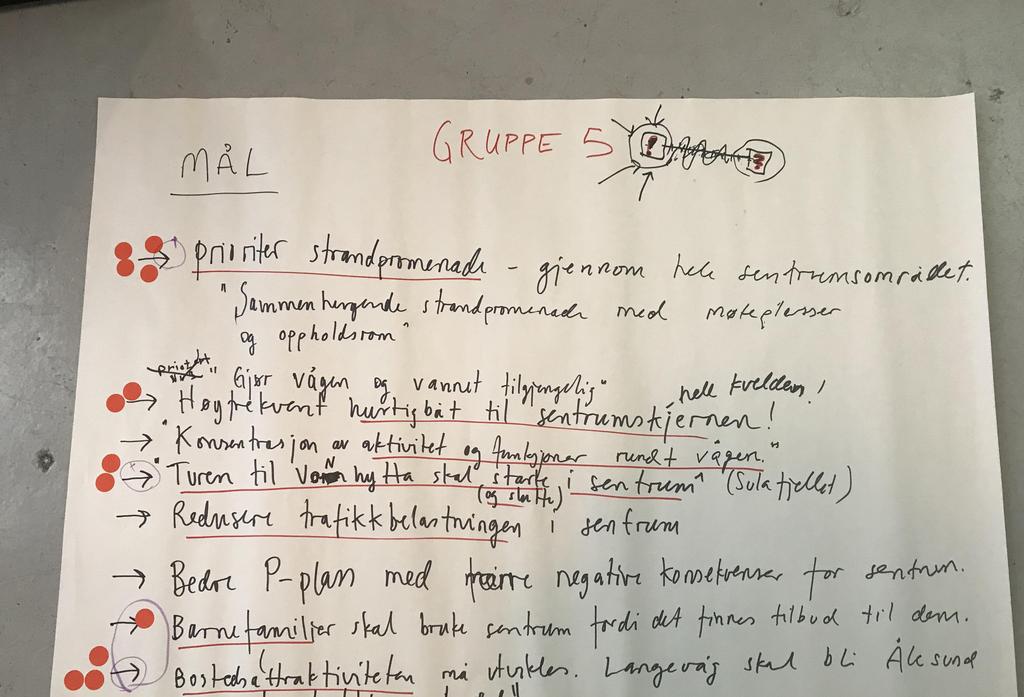 GRUPPE 5
MÅL
! ?
→ prioriter strandpromenade - gjennom hele sentrumsområdet.
"Sammenhengende strandpromenade med møteplasser
og oppholdsrom"
"Gjør vågen og vannet tilgjengelig"
hele kvelden!
→ Høyfrekvent hurtigbåt til sentrumskjernen!
→ "Konsentrasjon av aktivitet og funksjoner rundt vågen."
→ "Turen til hytta skal starte i sentrum" (Sulafjellet)
(og slutte)
→ Redusere trafikkbelastningen i sentrum
→ Bedre P-plass med negative konsekvenser for sentrum.
→ Barnefamilier skal bruke sentrum fordi det finnes tilbud til dem.
→ Bostedsattraktiviteten må utvikles. Langevåg skal bli Ålesund